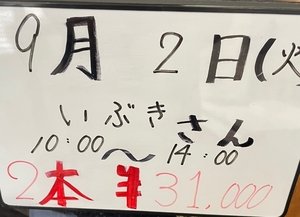 9月2日(火
いぶきさん
10:00〜14:00
2本 ¥31,000